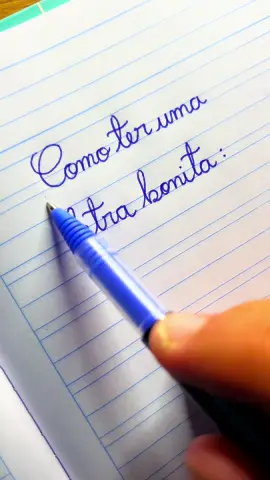 Como ter uma
letra bonita: